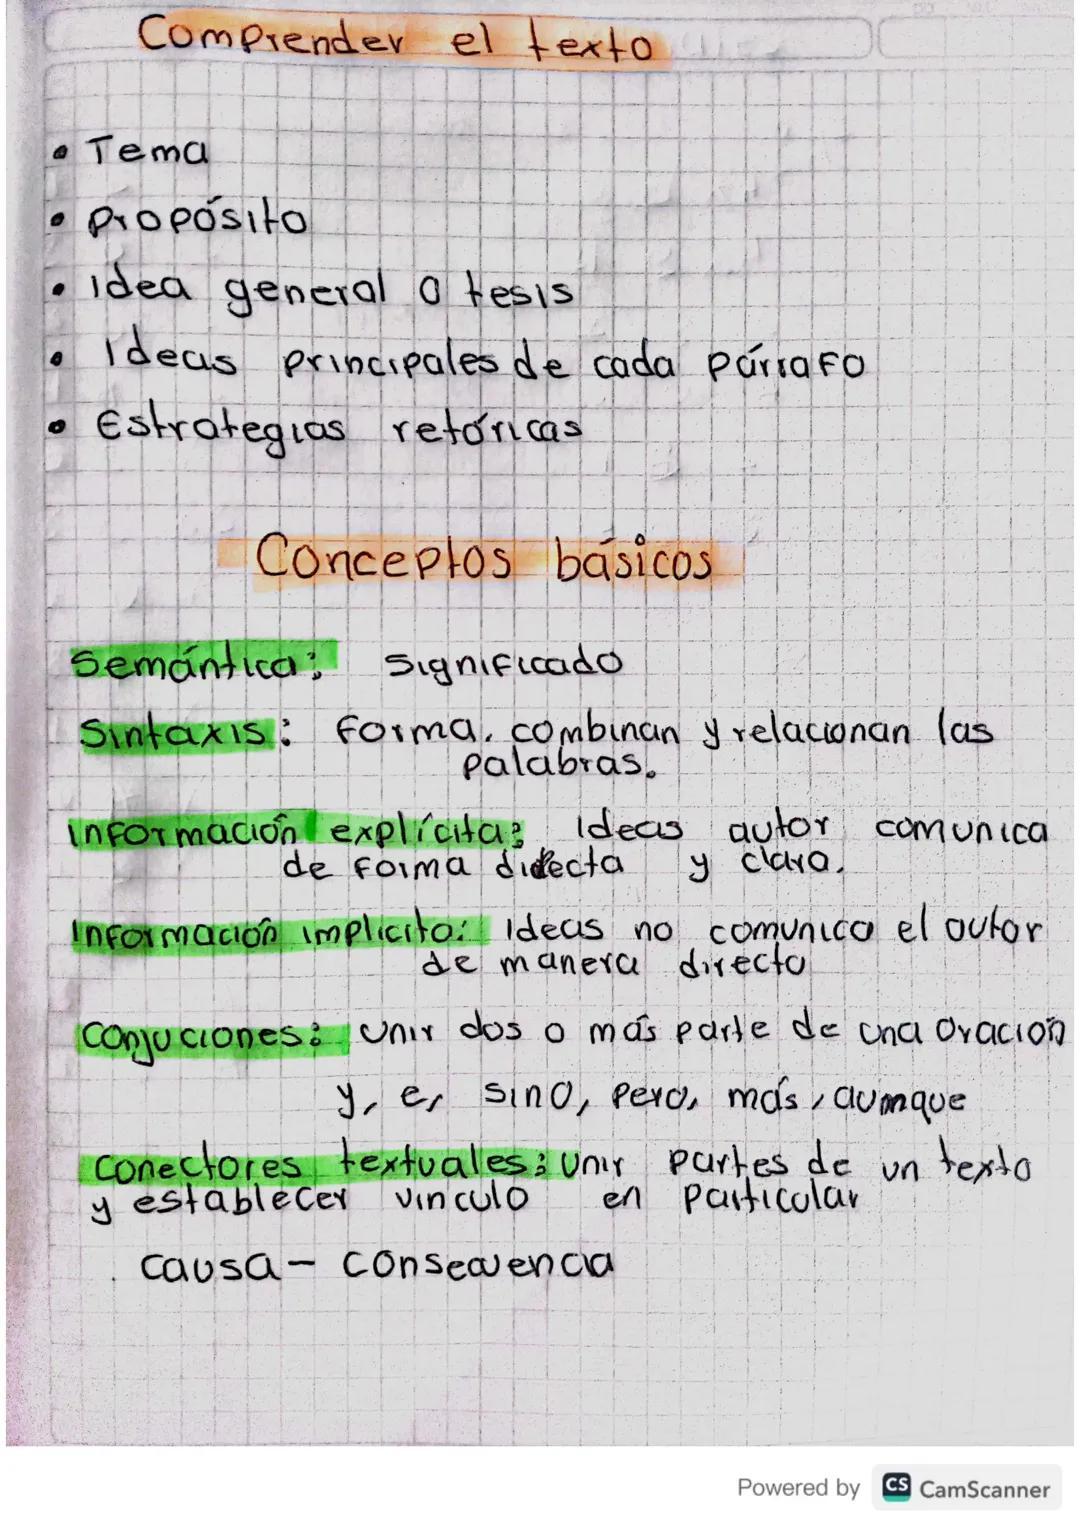 Comprender el texto
• Tema
• Propósito
• Idea general o tesis
• Ideas principales de cada párrafo
• Estrategias retóricas
Conceptos básicos
Semántica: Significado
Sintaxis: forma, combinan y relacionan las
palabras.
Información explícita: Ideas autor comunica
de forma directa y clara.
Información implicita: Ideas no comunica el autor
de manera directa
Conjuciones: Unir dos o más parte de una oración
y, e, sino, pero, más, aumque
Conectores textuales: unir partes de un texto
y establecer vinculo en particular
causa - consecuencia
Powered by CS CamScanner